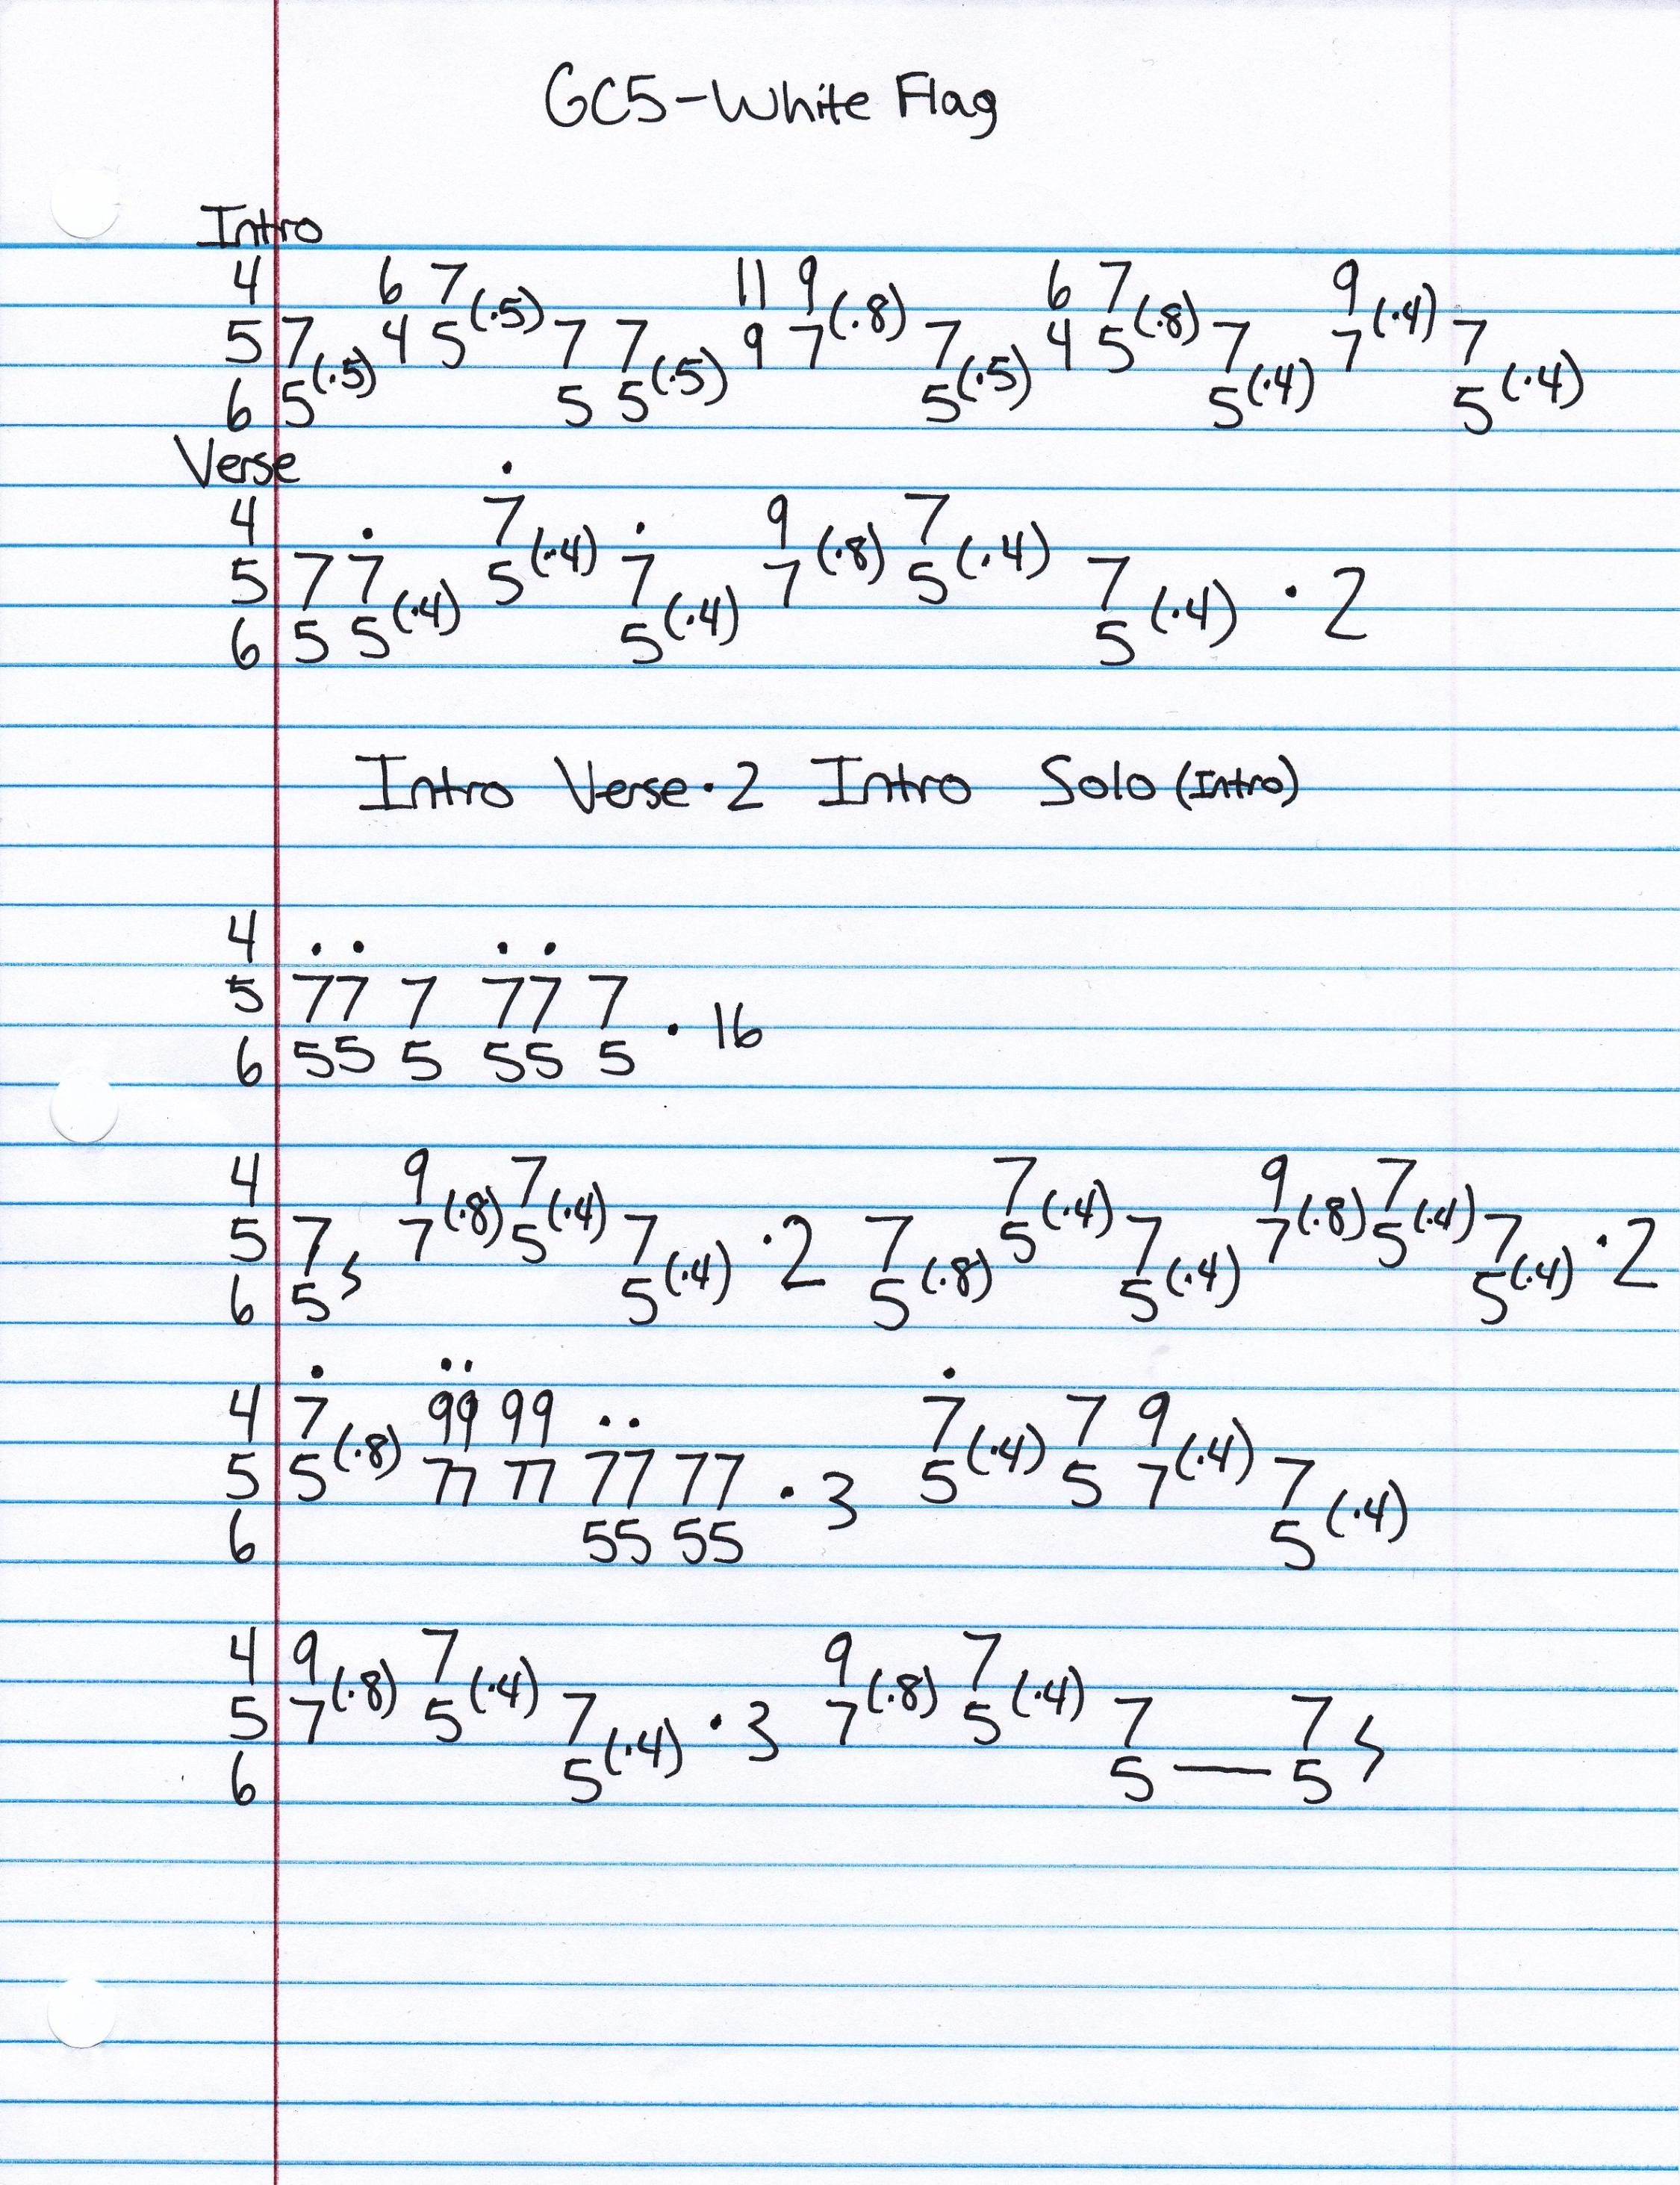 GC5-White Flag
Intro
4 6 7(.5) 11 9(.8) 6 7(.8) 9(.4)
5 7(.5) 4 5 7 7(.5) 9 7 7(.5) 4 5 7 7 7
6 5 5 5 5 5(.4) 5(.4)
Verse
4 7̇(.4) 9(.8) 7(.4)
5 7 7̇ 5 7̇ 7 5 7 · 2
6 5 5(.4) 5(.4) 5(.4)
Intro Verse·2 Intro Solo (Intro)
4 . . . .
5 77 7 77 7 · 16
6 55 5 55 5
4 9(.8) 7(.4) 7(.4) 9(.8) 7(.4)
5 7 7 5 7 ·2 7 5 7 7 5 7 ·2
6 5 ϟ 5(.4) 5(.8) 5(.4) 5(.4)
4 7̇(.8) 9̇9̇ 99 7̇(.4) 7 9(.4)
5 5 77 77 7̇7̇ 77 · 3 5 5 7 7
6 55 55 5(.4)
4 9(.8) 7(.4) 9(.8) 7(.4)
5 7 5 7 ·3 7 5 7 7 ϟ
6 5(.4) 5 — 5